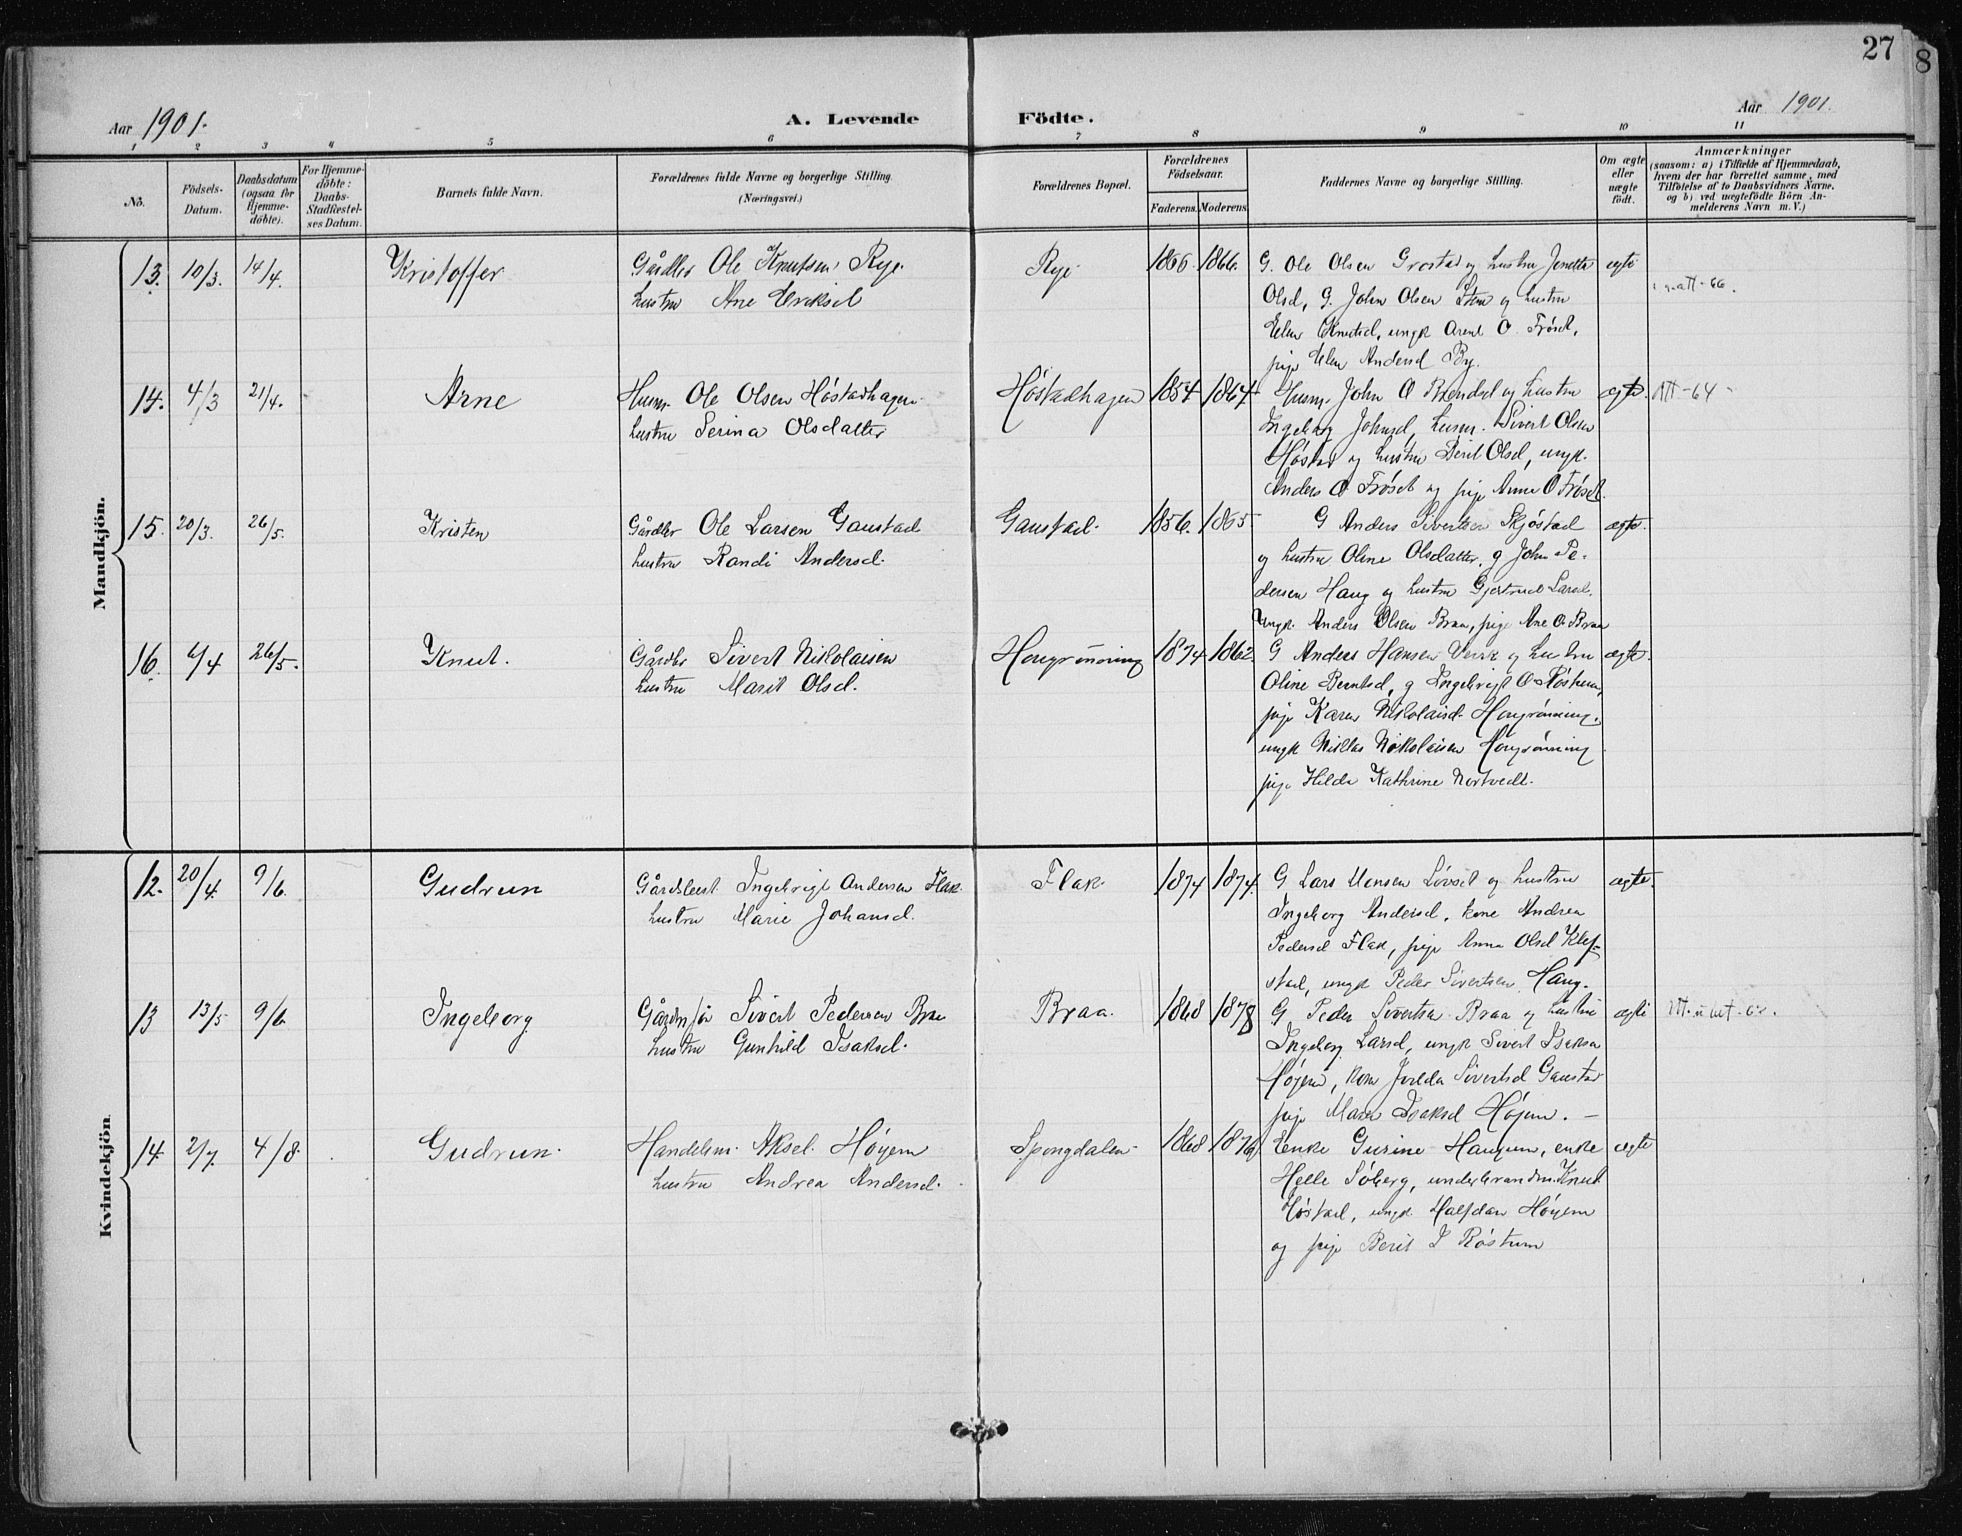 27
8
Aar 1901.
A. Levende Födte.
Aar 1901.
1 2 3 4 5 6 7 8 9 10 11
No.
Födsels-Datum.
Daabsdatum (ogsaa for Hjemme-döbte).
For Hjemme-döbte: Daabs-Stadfæstel-ses Datum.
Barnets fulde Navn.
Forældrenes fulde Navne og borgerlige Stilling.
(Næringsvei.)
Forældrenes Bopæl.
Forældrenes Födselsaar.
Faderens. Moderens.
Faddernes Navne og borgerlige Stilling.
Om ægte eller uægte födt.
Anmærkninger
(saasom: a) i Tilfælde af Hjemmedaab,
hvem der har forrettet samme, med
Tilföielse af to Daabsvidners Navne,
og b) ved uægtefödte Börn An-
melderens Navn m. V.)
Mandkjön.
13. 10/3. 14/4. Kristoffer Gårdbr Ole Knutsen Rye. Rye 1866 1866. G. Ole Olsen Grøstad og hustru Jonetta ægte
hustru Ane Eriksd Olsd, G. John Olsen Sten og hustru
Elen Knutsd, ungk Arent O. Frøset,
pige Elen Andersd By.
14. 4/3 21/4. Arne Husm. Ole Olsen Høstadhagen Høstadhagen 1854 1864. Husm. John O Brendsel og hustru ægte. Att-64
hustru Serina Olsdatter Ingeborg Johnsd, husm. Sivert Olsen
Høstad og hustru Berit Olsd, ungk.
Anders O Frøset og pige Anne O Frøset.
15. 20/3. 26/5. Kristen Gårdbr Ole Larsen Gaustad Gaustad. 1856. 1865 G Anders Sivertsen Skjøstad ægte.
hustru Randi Andersd. og hustru Oline Olsdatter, g John Pe-
dersen Haug og hustru Gjertrud Larsd.
Ungk. Anders Olsen Braa, pige Ane O. Braa
16. 6/4 26/5. Knut. Gårdbr Sivert Nikolaisen Haugrønning 1874 1862. G Anders Hansen og hustru ægte.
hustru Marit Olsd. Oline Berntsd, g Ingebrigt O Røstum,
pige Karen Nikolaisd. Haugrønning,
ungk Niklas Nikolaisen Haugrønning
pige Hilda Kathrine Nortvedt.
Kvindekjön.
12. 20/4. 9/6. Gudrun Gårdbest. Ingebrigt Andersen Flak Flak. 1874 1874. G Lars Monsen Løvset og hustru ægte.
hustru Marie Johansd. Ingeborg Andersd, kone Andrea
Pedersd Flak, pige Anna Olsd Klef-
stad, ungk Peder Sivertsen Haug.
13 13/5 9/6. Ingeborg Sivert Pedersen Braa Braa. 1868 1878 G. Peder Sivertsen Braa og hustru ægte
hustru Gunhild Isaksd. Ingeborg Larsd, ungk Sivert Isaksen
Høyem, kone Sivertsd Gaustad
pige Maren Isaksd Høyem. –
14. 2/7. 4/8. Gudrun. Handelsm. Aksel Høyem Spongdalen 1868 1876 Enke Gurine Haugum, enke ægte
hustru Andrea Andersd. Helle Søberg, underbrandm. Knut
Høstad, ungk Halfdan Høyem
og pige Berit I Røstum